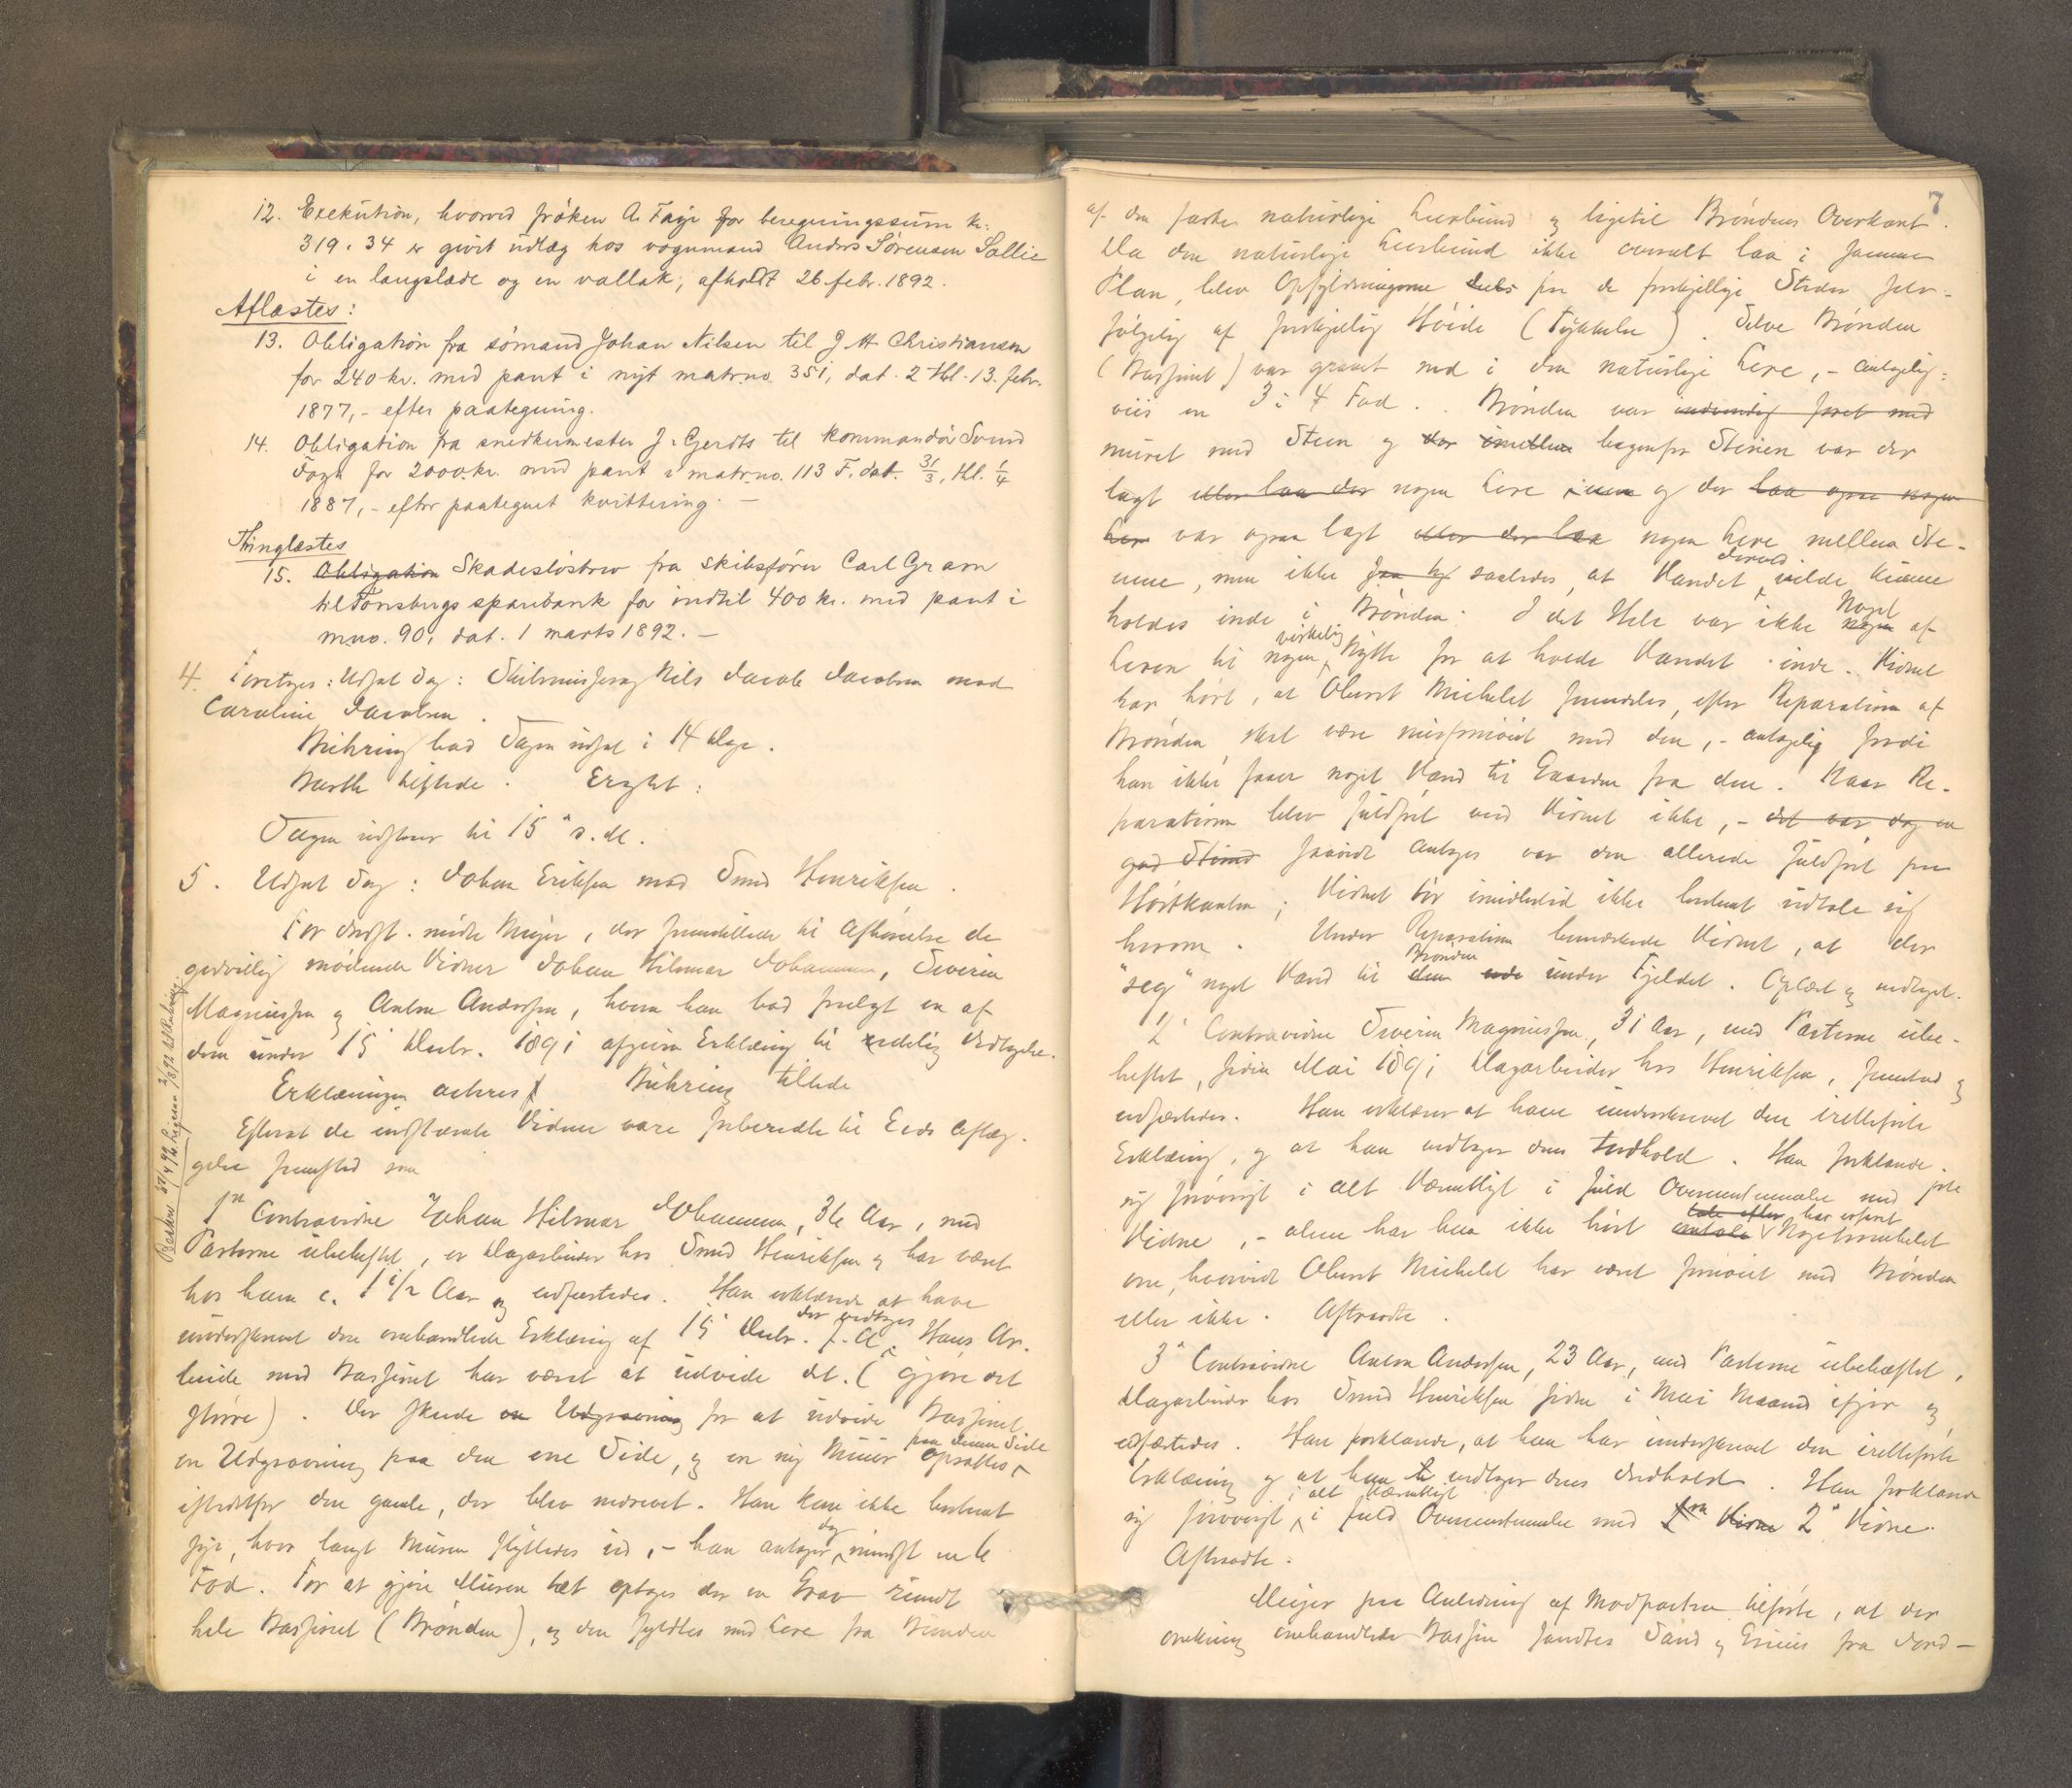 12. Exekution, hvorved frøken A. Faye for beregningssum kr.
319.34 er givet udlæg hos vognmand Anders Sørensen Sollie
i en langslæde og en vallak, afholdt 26 febr. 1892.
Aflæstes:
13. Obligation fra sømand Johan Nilsen til J. A. Christiansen
for 240 kr. med pant i nyt matr.no. 351, dat. 2 thl. 13. febr.
1877,- efter paategning.
14. Obligation fra snedkermester J. Gjerdts til kommandør Svend
Foyn for 2000 kr. med pant i matr.no. 113 F. dat. 31/3, thl. 1/4
1887,- efter paategnet kvittering. —
Thinglæstes
15. Obligation Skadesløsbrev fra skibsfører Carl Gram
til Tønsbergs sparebank for indtil 400 kr. med pant i
mno. 90, dat. 1 marts 1892. —
4. Foretages: Udsat Sag: Skilsmissesag Nils Jacob Jacobsen mod
Caroline Jacobsen.
Bühring bad Sagen udsat i 14 Dage.
Barth tilstede. Eragtet:
Sagen udstaar til 15de d. M.
5. Udsat Sag: Johan Eriksen mod Smed Henriksen.
For Indst. mødte Meyer, der fremstillede til Afhørelse de
godvillig mødende Vidner Johan Hilmar Johannesen, Severin
Magnussen og Anton Andersen, hvem han bad forelagt en af
dem under 15 Decbr. 1891 afgiven Erklæring til edelig Vedtagelse.
Erklæringen acteres. Bühring tilstede
Efterat de indstævnte Vidner vare forberedte til Eeds Aflæg-
gelse fremstod som
1ste Contravidne Johan Hilmar Johannesen, 36 Aar, med
Parterne ubeheftet, er Dagarbeider hos Smed Henriksen og har været
hos ham c. 1 1/2 Aar og edfæstedes. Han erklærede at have
underskrevet den omhandlede Erklæring af 15 Decbr. f. A. der vedtages Hans Ar-
beide med Bassinet har været at udvide det. (gjøre det
større). Der skede en Udgravning for at udvide Bassinet
en Udgravning paa den ene Side, og en ny Muur opsattes paa denne Side
istedetfor den gamle, der blev nedrevet. Han kan ikke bestemt
sige, hvor langt Muren flyttedes ud,- han antager dog mindst en 6
Fod. For at gjøre Muren tæt optoges der en Grav rundt
hele Bassinet (Brønden), og den fyldtes med Lere fra Bunden
Beskrev 27/4 92 til Meyer 2/8 92 til Buhring
7
af den faste naturlige Leerbund og ligetil Brøndens Overkant.
Da den naturlige Leerbund ikke overalt laa i samme
Plan, blev Opfyldningerne dels paa de forskjellige Steder selv-
følgelig af forskjellig Høide (Tykkelse). Selve Brønden
(Bassinet) var gravet ned i den naturlige Lere,- antagelig-
viis en 3 à 4 Fod. Brønden var indvendig foret med
muret med Steen og der imellem bagenfor Stenen var der
lagt eller laa der nogen Lere inden og der laa ogsaa nogen
Lere var ogsaa lagt eller der laa nogen Lere mellem Ste-
nene, men ikke saaledes, at Vandet derved vilde kunne
holdes inde i Brønden. I det Hele var ikke nogen Noget af
Leren til nogen virkelig Nytte for at holde Vandet inde. Vidnet
har hørt, at Oberst Michelet fremdeles, efter Reparationen af
Brønden skal være misfornøiet med den,- antagelig fordi
han ikke faaer noget Vand til Gaarden fra den. Naar Re-
parationen blev fuldført veed Vidnet ikke,- det var dog en
god Stund saavidt antages var den allerede fuldført paa
Høstkanten; Vidnet tør imidlertid ikke bestemt udtale sig
herom. Under Reparationen bemærkede Vidnet, at der
"seg" noget Vand til Brønden dem under Fjeldet. Oplæst og vedtaget.
2det Contravidne Severin Magnussen, 31 Aar, med Parterne ube-
heftet, siden Mai 1891 Dagarbeider hos Henriksen, fremstod og
edfæstedes. Han erklærer at have underskrevet den irettelagte
Erklæring, og at han vedtager dens Indhold. Han forklarede
sig forøvrigt i alt Væsentligt i fuld Overensstemmelse med forste
Vidne,- alene har han ikke hørt antale tale efter, har erfaret Nogetsomhelst
om, hvorvidt Oberst Michelet har været fornøiet med Brønden
eller ikke. Aftraadte.
3die Contravidne Anton Andersen, 23 Aar, med Parterne ubeheftet,
Dagarbeider hos Smed Henriksen siden i Mai Maaned ifjor og
edfæstedes. Han forklarede, at han har underskrevet den irettelagte
Erklæring og at han vedtager dens Indhold. Han forklarede
sig forøvrigt i alt Væsentligt i fuld Overensstemmelse med 1ste Vidne 2det Vidne.
Aftraadte.
Meyer paa Anledning af Modparten tilførte, at der
omkring omhandlede Bassin fandtes Sand og Gruus fra Jord-